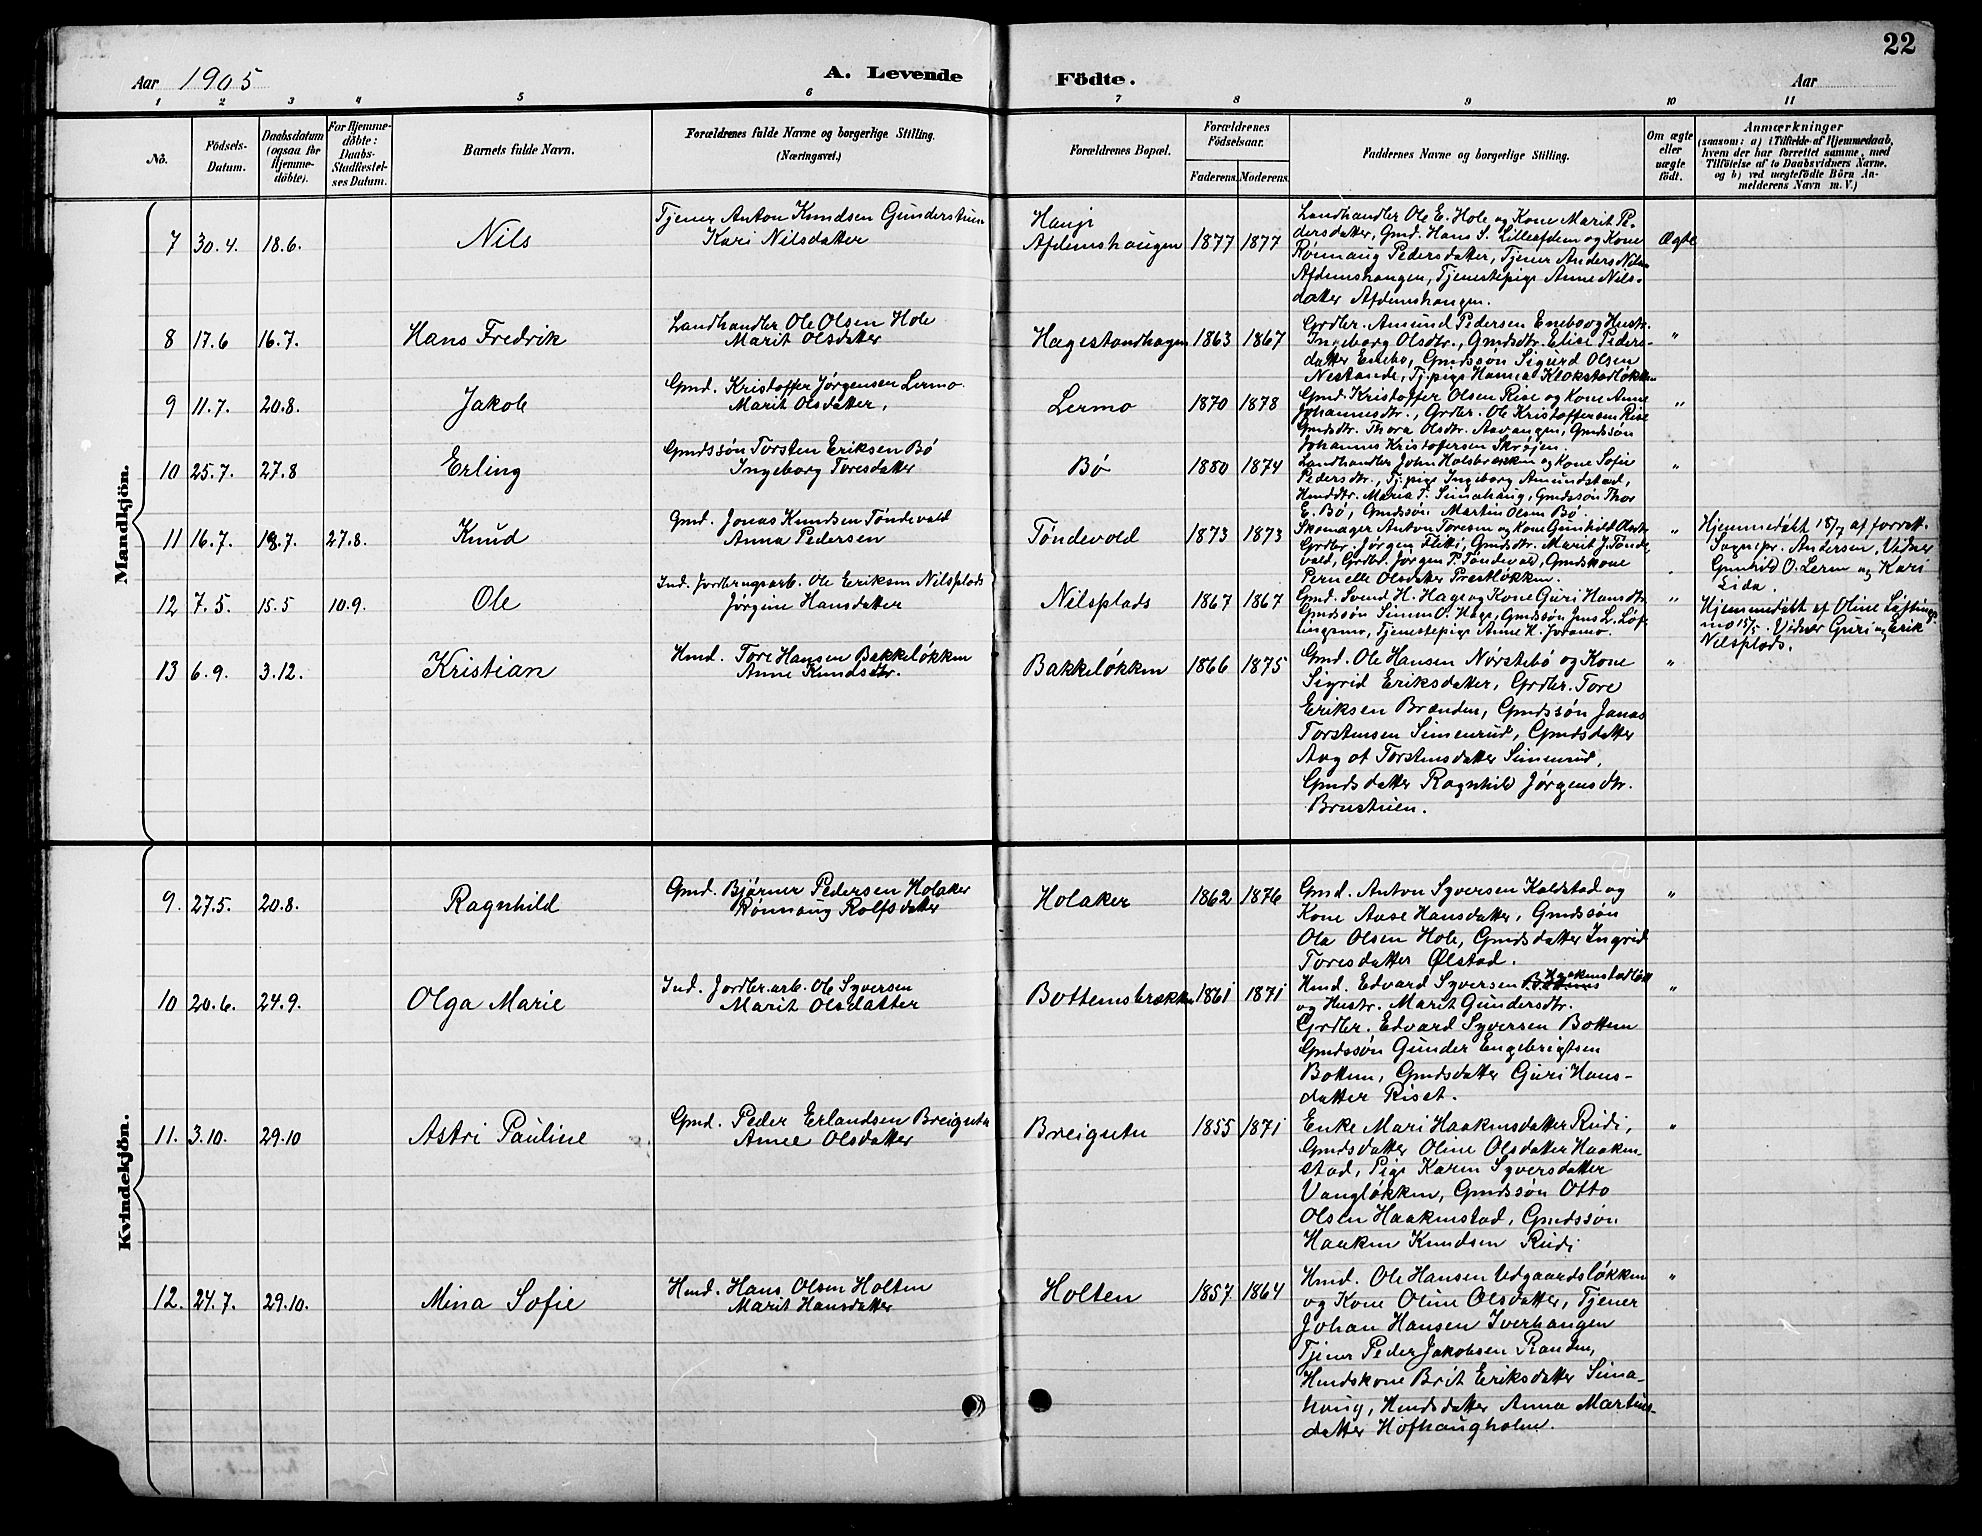 22
Aar 1905
A. Levende
Födte.
Aar
1 2 3 4 5 6 7 8 9 10 11
No.
Födsels-
Datum.
Daabsdatum
(ogsaa for
Hjemme-
döbte).
For Hjemme-
döbte:
Daabs-
Stadfæstel-
ses Datum.
Barnets fulde Navn.
Forældrenes fulde Navne og borgerlige Stilling.
(Næringsvei.)
Forældrenes Bopæl.
Forældrenes
Födselsaar.
Faderens. Moderens.
Faddernes Navne og borgerlige Stilling.
Om ægte
eller
uægte
födt.
Anmærkninger
(saasom: a) i Tilfælde af Hjemmedaab,
hvem der har forrettet samme, med
Tilföielse af to Daabsvidners Navne,
og b) ved uægtefödte Börn An-
melderens Navn m. V.)
Mandkjön.
7 30.4. 18.6. Nils
Tjener Anton Knudsen Gunderstuen
Kari Nilsdatter
Afdemshaugen 1877 1877
Landhandler Ole E. Hole og Kone Marit Pe-
dersdatter, Gmd. Hans S. Lilleafdem og Kone
Rønnaug Pedersdatter, Tjener Anders Nilsen
Afdemshaugen, Tjenestepige Anne Nils-
datter Afdemshaugen.
Ægte
8 17.6 16.7. Hans Fredrik
Landhandler Ole Olsen Hole
Marit Olsdatter
Hagestandhagen 1863 1867
Grdbr. Amund Pedersen Enebo og Hustr.
Ingeborg Olsdtr., Gmdsdtr. Elise Peders-
datter Enebo, Gmdssøn Sigurd Olsen
Nestande, Tj.pige Hanna Klokstadløkken
"
9 11.7. 20.8. Jakob
Gmd. Kristoffer Jørgensen Lermo.
Marit Olsdatter,
Lermo 1870 1878
Gmd. Kristoffer Olsen Rise og Kone Anne
Johannesdtr., Grdbr. Ole Kristoffersen Rise
Gmdsdtr. Thora Olsdtr. Aavangen, Gmdssøn
Johannes Kristofersen Skrøjen.
"
10 25.7. 27.8 Erling
Gmdssøn Torsten Eriksen Bø
Ingeborg Toresdatter
Bø 1880 1874
Landhandler John Holsbrækken og Kone Sofie
Pedersdtr., Tj.pige Ingeborg Amundstad,
Hmdsdtr. Maria T. Simahaug, Gmdssøn Thor
E. Bø, Gmdssøn Martin Olsen Bø.
"
11 16.7. 18.7. 27.8. Knud
Gmd. Jonas Knudsen Tøndevold
Anna Pedersen
Tøndevold 1873 1873
Skomager Anton Toresen og Kone Gunhild Olsdtr.
Grdbr. Jørgen Flitti, Gmdsdtr. Marit J. Tønde
vold, Grdbr. Jørgen P. Tøndevold, Gmdskone
Pernelle Olsdatter Prestløkken.
"
Hjemmedøbt 18/7 af forrett.
Sognepr. Andersen, Vidner
Gunhild O. Lerm og Kari
Lida.
12 7.5. 15.5 10.9. Ole
Ind. Jordbrugsarb. Ole Eriksen Nilsplads
Jørgine Hansdatter
Nilsplads 1867 1867
Gmd. Svend H. Hage og Kone Guri Hansdtr.
Gmdssøn Simen O. Hage, Gmdssøn Jens L. Løf-
tingsmo, Tjenestepige Anne H. Joramo.
"
Hjemmedøbt af Oline Løftings-
mo 15/5. Vidner Guri og Erik
Nilsplads.
13 6.9. 3.12. Kristian
Hmd. Tore Hansen Bakkeløkken
Anne Knudsdtr.
Bakkeløkken 1866 1875
Gmd. Ole Hansen Nørstebø og Kone
Sigrid Eriksdatter, Grdbr. Tore
Eriksen Brænden, Gmdssøn Jonas
Torstensen Simenrud, Gmdsdatter
Aagot Torstensdatter Simenrud,
Gmdsdatter Ragnhild Jørgensdtr.
Brustuen.
"
Kvindekjön.
9. 27.5. 20.8. Ragnhild
Gmd. Bjørner Pedersen Holaker
Rønnaug Rolfsdatter
Holaker 1862 1876
Gmd. Anton Syversen Kolstad og
Kone Aase Hansdatter, Gmdssøn
Ola Olsen Hole, Gmdsdatter Ingrid
Toresdatter Ølstad.
"
10 20.6. 24.9. Olga Marie
Ind. Jordbr.arb. Ole Syversen
Marit Olsdatter
Bottemsbrækken 1861 1871
Hmd. Edvard Syversen Haakenstadløkk
og Hustr. Marit Gundersdtr.
Grdbr. Edvard Syversen Bottem
Gmdssøn Gunder Engebrigtsen
Bottem, Gmdsdatter Guri Hans-
datter Riset.
"
11. 3.10. 29.10 Astri Pauline
Gmd. Peder Erlandsen Breiguta
Anne Olsdatter
Breiguta 1855 1871
Enke Mari Haakensdatter Rudi,
Gmdsdatter Oline Olsdatter Haaken-
stad, Pige Karen Syversdatter
Vangløkken, Gmdssøn Otto
Olsen Haakenstad, Gmdssøn
Haaken Knudsen Rudi
"
12. 24.7. 29.10. Mina Sofie
Hmd. Hans Olsen Holten
Marit Hansdatter
Holten 1857 1864
Hmd. Ole Hansen Udgaardsløkken
og Kone Oline Olsdatter, Tjener
Johan Hansen Iverhaugen
Tjener Peder Jakobsen Randen,
Hmdskone Brit Eriksdatter Sima-
haug, Hmdsdatter Anna Martins-
datter Hofhaugholm.
"